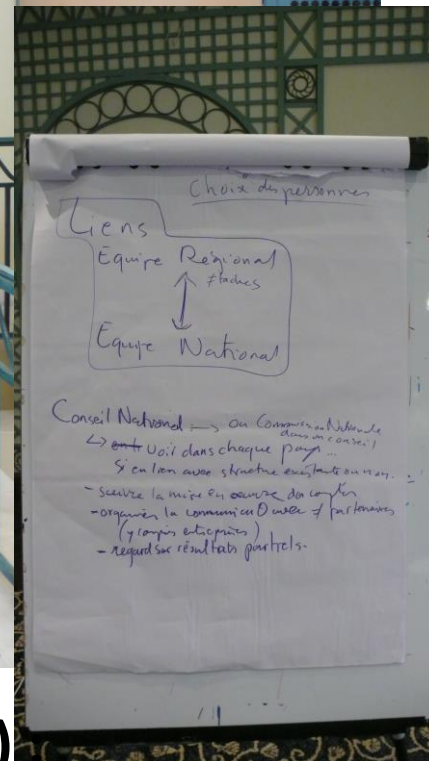 Choix des personnes
Liens
Équipe Régional
≠ taches
Équipe National
Conseil National → ou Commission Nationale
dans un conseil
↳ Voir dans chaque pays...
Si en lien avec structure existante ou non.
- suivre la mise en oeuvre
- organiser la communic° avec ≠ partenaires
(y compris entreprises)
- regard sur résultats partiels.
)